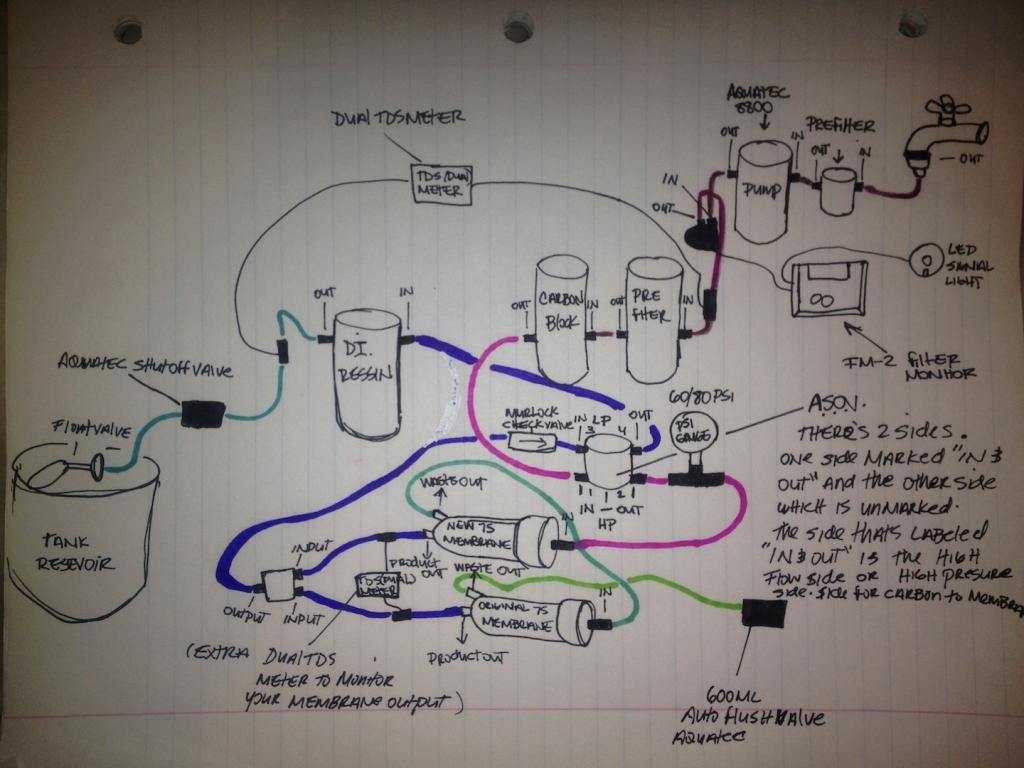 AQUATEC
8800
DUAL TDS METER
PREFILTER
OUT
IN
OUT
IN
OUT
TDS (DUAL)
METER
PUMP
IN
OUT
LED
SIGNAL
LIGHT
OUT
CARBON
BLOCK
IN
OUT
PRE
FILTER
IN
OUT
IN
D.I.
RESSIN
FM-2 FILTER
MONITOR
AQUATEC SHUTOFF VALVE
60/80 PSI
ASOV.
MURLOCK
CHECK VALVE
IN
LP
OUT
3
4
PSI
GAUGE
FLOAT VALVE
THERE'S 2 SIDES.
ONE SIDE MARKED "IN &
OUT" AND THE OTHER SIDE
WHICH IS UNMARKED.
THE SIDE THATS LABELED
"IN & OUT" IS THE HIGH
FLOW SIDE OR HIGH PRESURE
SIDE. SIDE FOR CARBON TO MEMBRA
1
2
IN
OUT
HP
WASTE OUT
NEW 75
MEMBRANE
IN
TANK
RESEVOIR
INPUT
PRODUCT
OUT
WASTE OUT
TDS (DUAL)
METER
ORIGINAL 75
MEMBRANE
IN
OUTPUT
INPUT
PRODUCT OUT
(EXTRA DUAL TDS
METER TO MONITOR
YOUR MEMBRANE OUTPUT)
600ML
AUTO FLUSH VALVE
AQUATEC